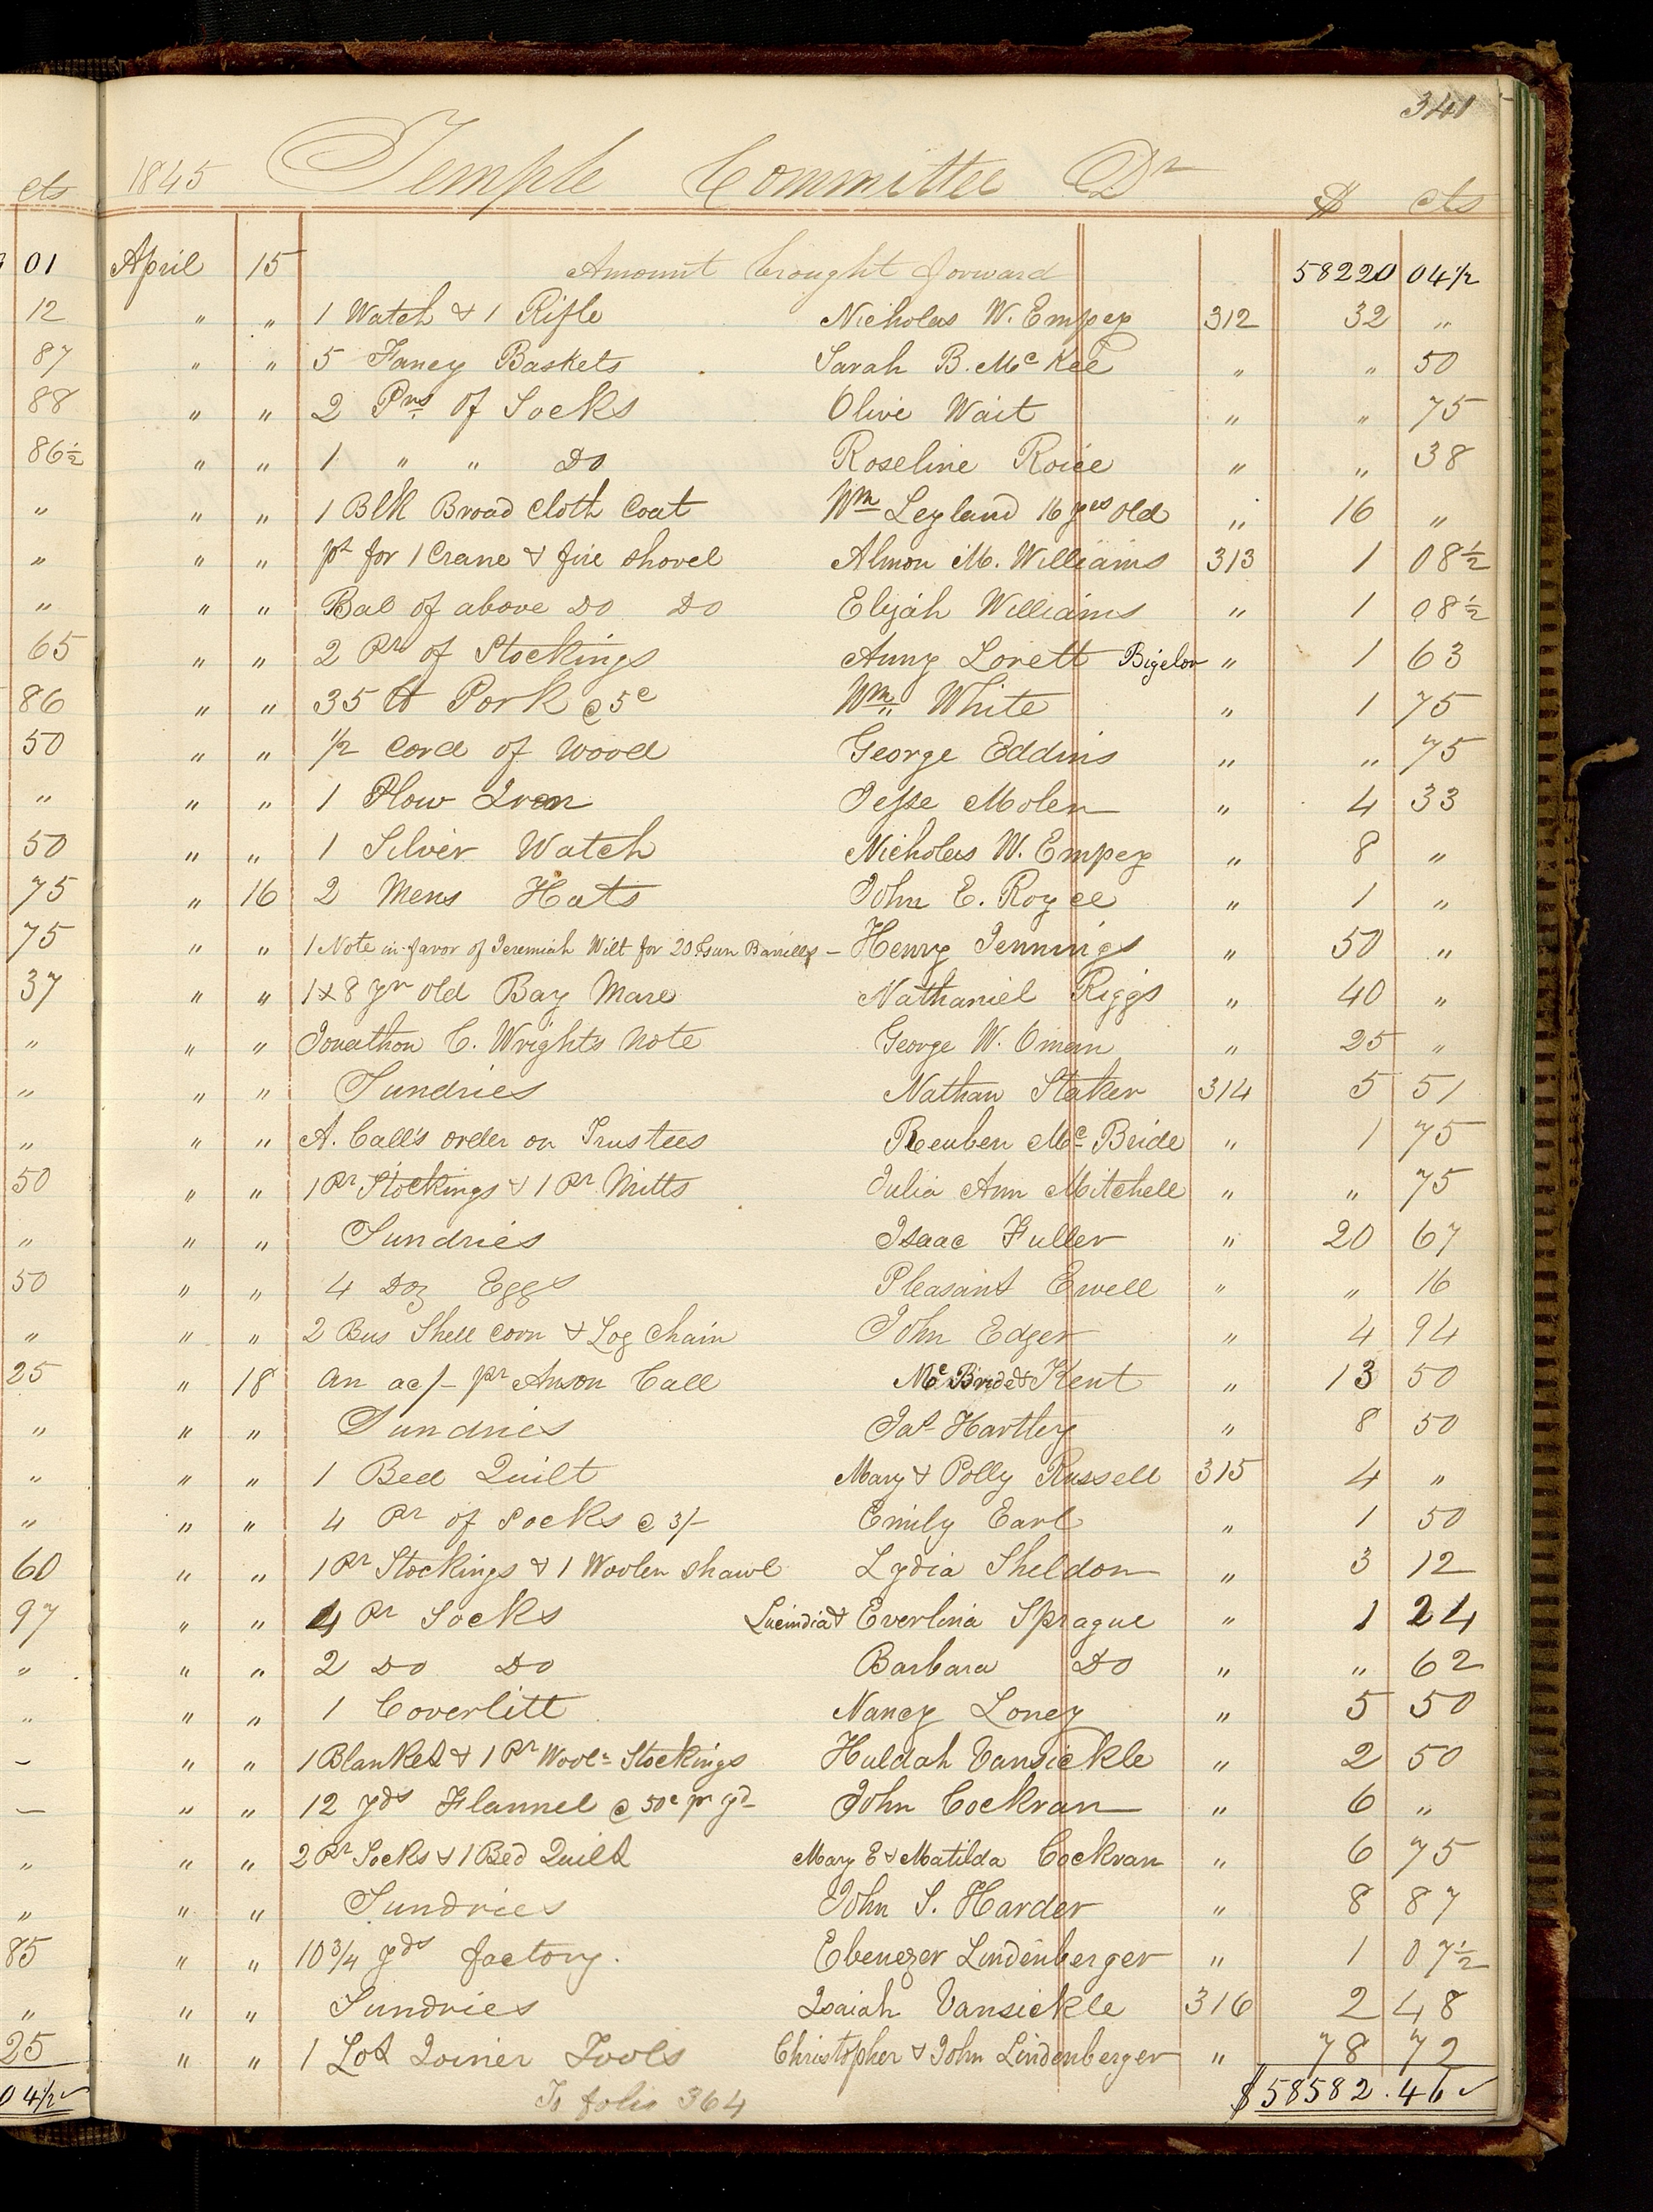 341
1845 Temple Committee Dr $ cts
cts
01 April 15 Amount brought forward 58220 04½
12 " " 1 Watch & 1 Rifle Nicholas W. Empey 312 32 "
87 " " 5 Fancy Baskets Sarah B. McKee " " 50
88 " " 2 Prs of Socks Olive Wait " " 75
86½ " " 1 " " Do Roseline Roice " " 38
" " " 1 Blk Broad Cloth Coat Wm Leyland 16 yrs old " 16 "
" " " pt for 1 Crane & fire shovel Almon M. Williams 313 1 08½
" " " Bal of above Do Do Elijah Williams " 1 08½
65 " " 2 Prs of Stockings Anny Lorett Bigelow " 1 63
86 " " 35 ℔ Pork @ 5c Wm White " 1 75
50 " " ½ Cord of Wood George Eddins " " 75
" " " 1 Plow Iron Jesse Molen " 4 33
50 " " 1 Silver Watch Nicholas W. Empey " 8 "
75 " 16 2 Mens Hats John E. Royce " 1 "
75 " " 1 Note in favor of Jeremiah Wilt for 20 Gun Barrells – Henry Jennings " 50 "
37 " " 1 8 yr old Bay Mare Nathaniel Riggs " 40 "
" " " Jonathon C. Wright's Note George W. Oman " 25 "
" " " Sundries Nathan Staker 314 5 51
" " " A. Call's order on Trustees Reuben Mc Bride " 1 75
50 " " 1 Pr Stockings & 1 Pr Mitts Julia Ann Mitchell " " 75
" " " Sundries Isaac Fuller " 20 67
50 " " 4 Doz Eggs Pleasant Ewell " " 16
" " " 2 Bus Shell Corn & Log Chain John Edger " 4 94
25 " 18 An ac/- pr Anson Call Mc Bride & Kent " 13 50
" " " Sundries Jas Hartley " 8 50
" " " 1 Bed Quilt Mary & Polly Russell 315 4 "
" " " 4 Pr of Socks @ 3/- Emily Earl " 1 50
60 " " 1 Pr Stockings & 1 Woolen Shawl Lydia Sheldon " 3 12
97 " " 4 Pr Socks Lucindia & Everlina Sprague " 1 24
" " " 2 Do Do Barbara Do " " 62
" " " 1 Coverlitt Nancy Loney " 5 50
– " " 1 Blanket & 1 Pr Wooln Stockings Huldah Vansickle " 2 50
– " " 12 yds Flannel @ 50c pr yd John Cockran " 6 "
" " " 2 Pr Socks & 1 Bed Quilt Mary E & Matilda Cockran " 6 75
" " " Sundries John S. Harder " 8 87
85 " " 10¾ yds factory. Ebenezer Lindenberger " 1 07½
" " " Sundries Isaiah Vansickle 316 2 48
25 " " 1 Lot Joiner Tools Christopher & John Lindenberger " 78 72
04½ To folio 364 $58582.46